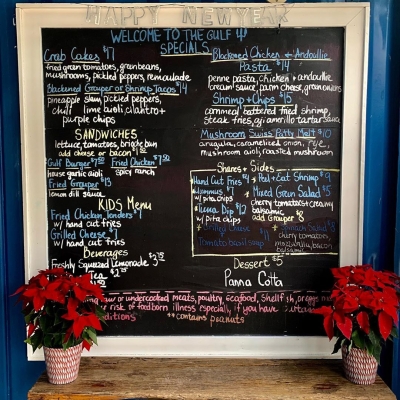 HAPPY NEW YEAR
WELCOME TO THE GULF
SPECIALS
Crab Cakes $17
fried green tomatoes, green beans,
mushrooms, pickled peppers, remoulade
Blackened Grouper or Shrimp Tacos $14
pineapple slaw, pickled peppers,
chili lime aioli, cilantro +
purple chips
SANDWICHES
lettuce, tomatoes, brioche bun
add cheese or bacon
Gulf Burger Fried Chicken
house garlic aioli spicy ranch
Fried Grouper $13
lemon dill sauce
KIDS Menu
Fried Chicken tenders $7
w/ hand cut fries
Grilled Cheese
w/ hand cut fries
Beverages
Freshly Squeezed Lemonade
Tea
Blackened Chicken + Andouille
Pasta $14
penne pasta, chicken + andouille
cream sauce, parm cheese, green onion
Shrimp + Chips $15
cornmeal battered fried shrimp,
steak fries, aji amarillo tartar sauce
Mushroom Swiss Patty Melt $10
arugula, caramelized onion, rye
mushroom aioli, roasted mushroom
Shares + Sides
Hand Cut Fries $4
Hummus $7
w/ pita chips
Tuna Dip $12
w/ pita chips
Grilled Cheese
Tomato basil soup
Peel + Eat Shrimp $9
Mixed Green Salad $5
cherry tomatoes + creamy
balsamic
add Grouper $8
Spinach Salad
cherry tomato,
mozzarella, bacon
balsamic
Dessert $5
Panna Cotta
raw or undercooked meats, poultry, seafood, shellfish, or eggs may
risk of foodborn illness especially if you have
conditions **contains peanuts